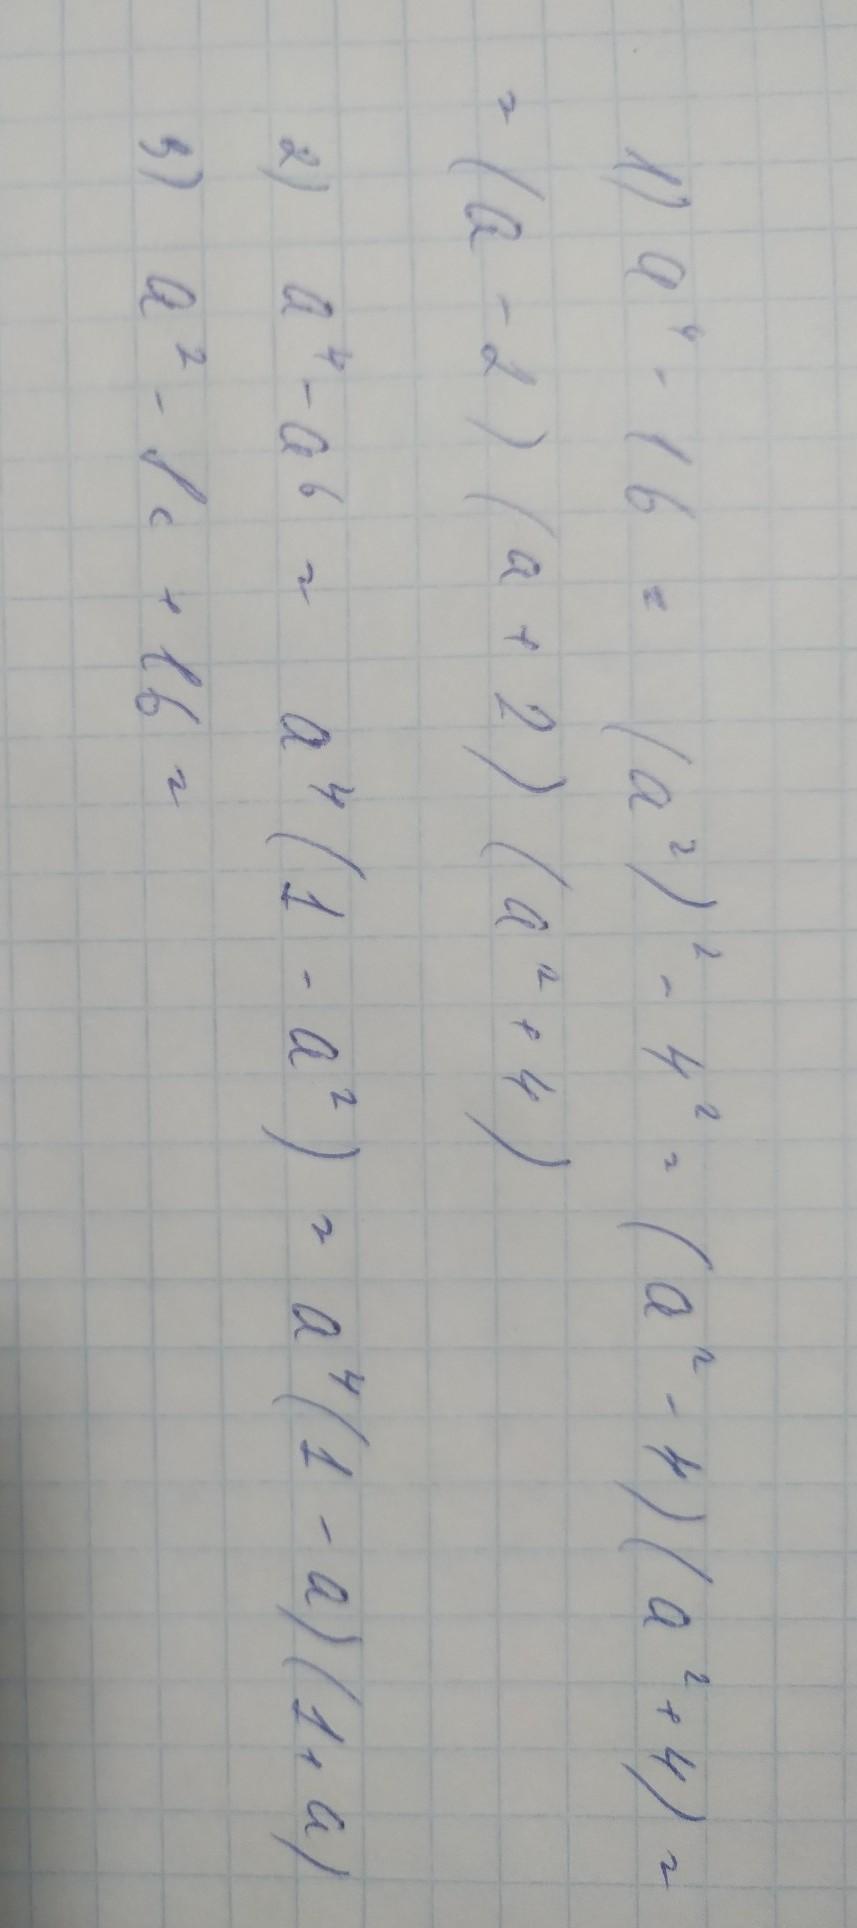 1) a⁴ - 16 = (a²)² - 4² = (a² - 4)(a² + 4) =
= (a - 2)(a + 2)(a² + 4)
2) a⁴ - a⁶ = a⁴(1 - a²) = a⁴(1 - a)(1 + a)
3) a² - 8c + 16 =